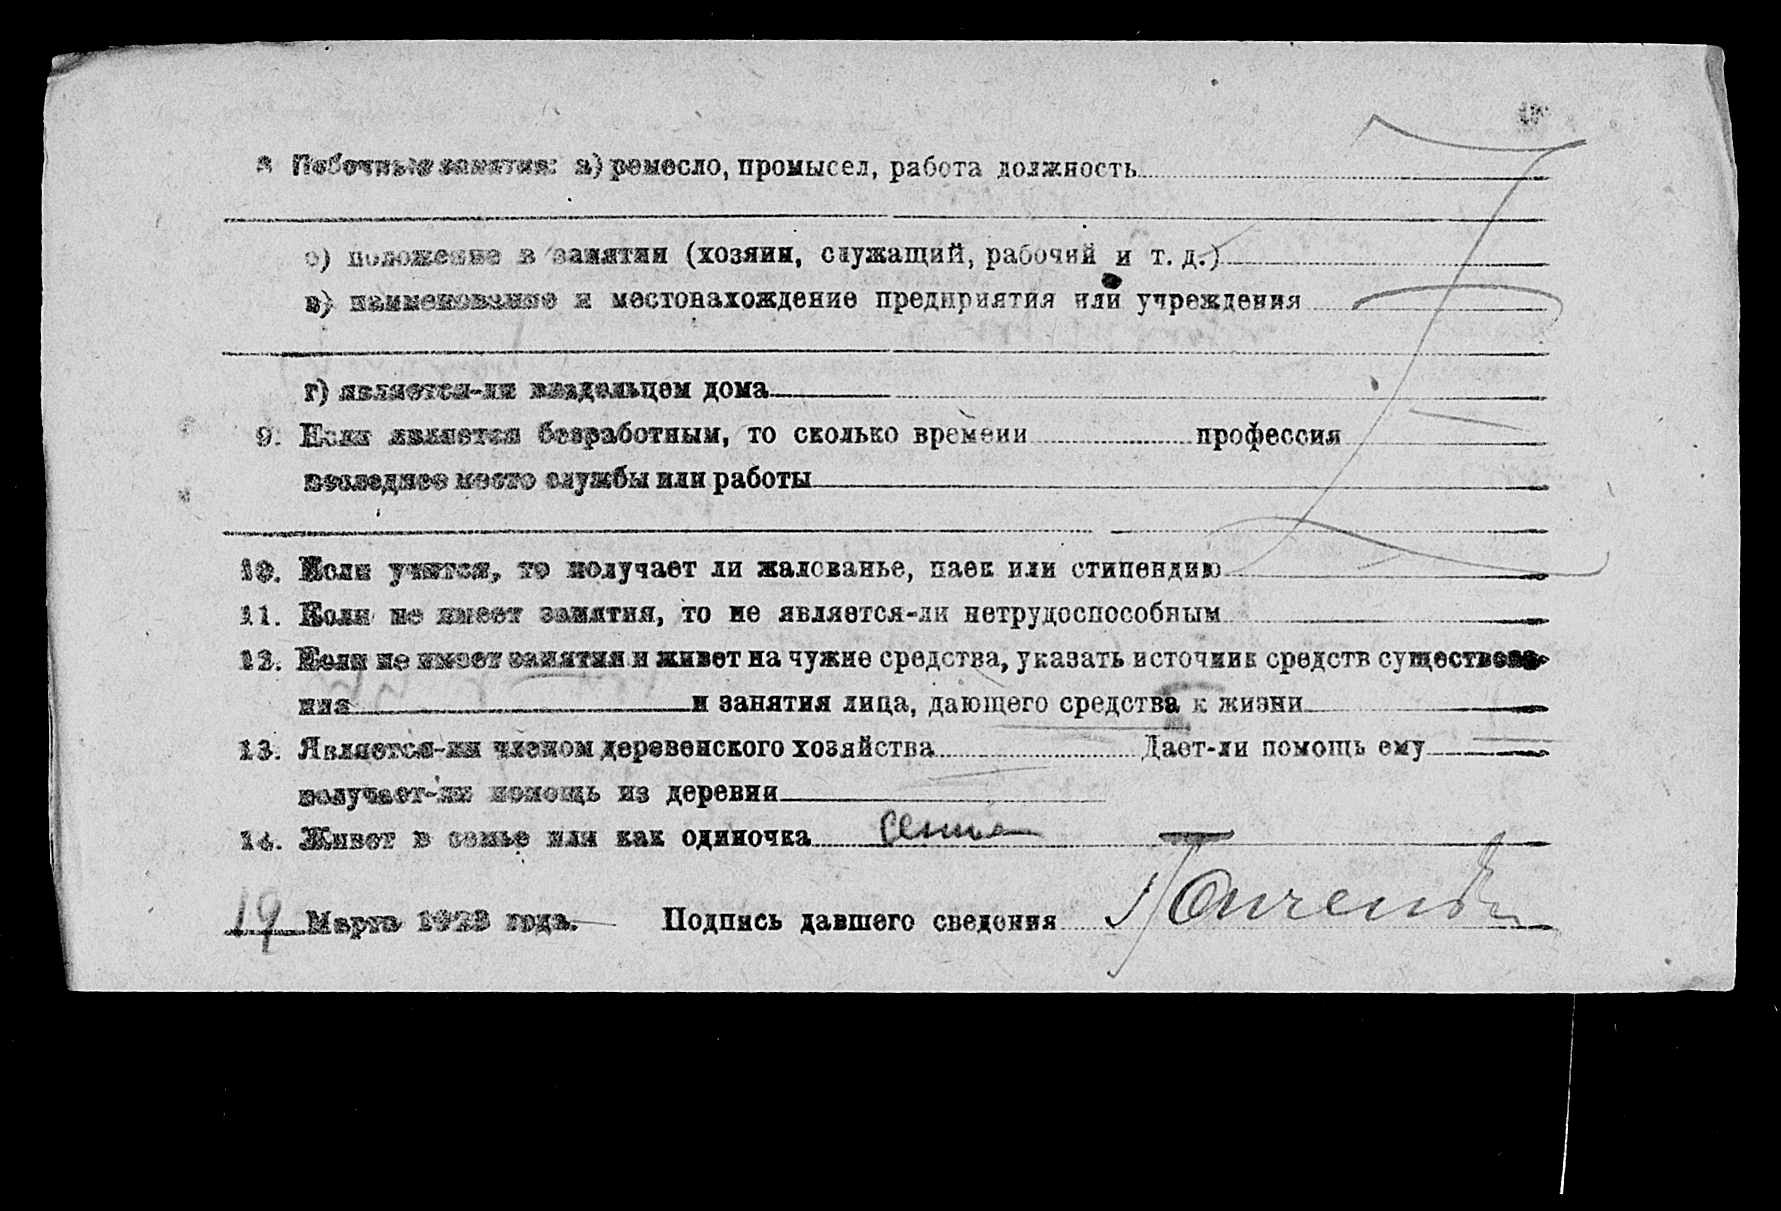 8 Побочные занятия: а) ремесло, промысел, работа должность
б) положение в занятии (хозяин, служащий, рабочий и т. д.)
в) наименование и местонахождение предприятия или учреждения
г) является-ли владельцем дома
9. Если является безработным, то сколько времени профессия
последнее место службы или работы
10. Если учится, то получает ли жалованье, паек или стипендию
11. Если не имеет занятия, то не является-ли нетрудоспособным
12. Если не имеет занятия и живет на чужие средства, указать источник средств существова-
ния и занятия лица, дающего средства к жизни
13. Является-ли членом деревенского хозяйства Дает-ли помощь ему
получает-ли помощь из деревни
14. Живет в семье или как одиночка семья
19 Марта 1923 года. Подпись давшего сведения